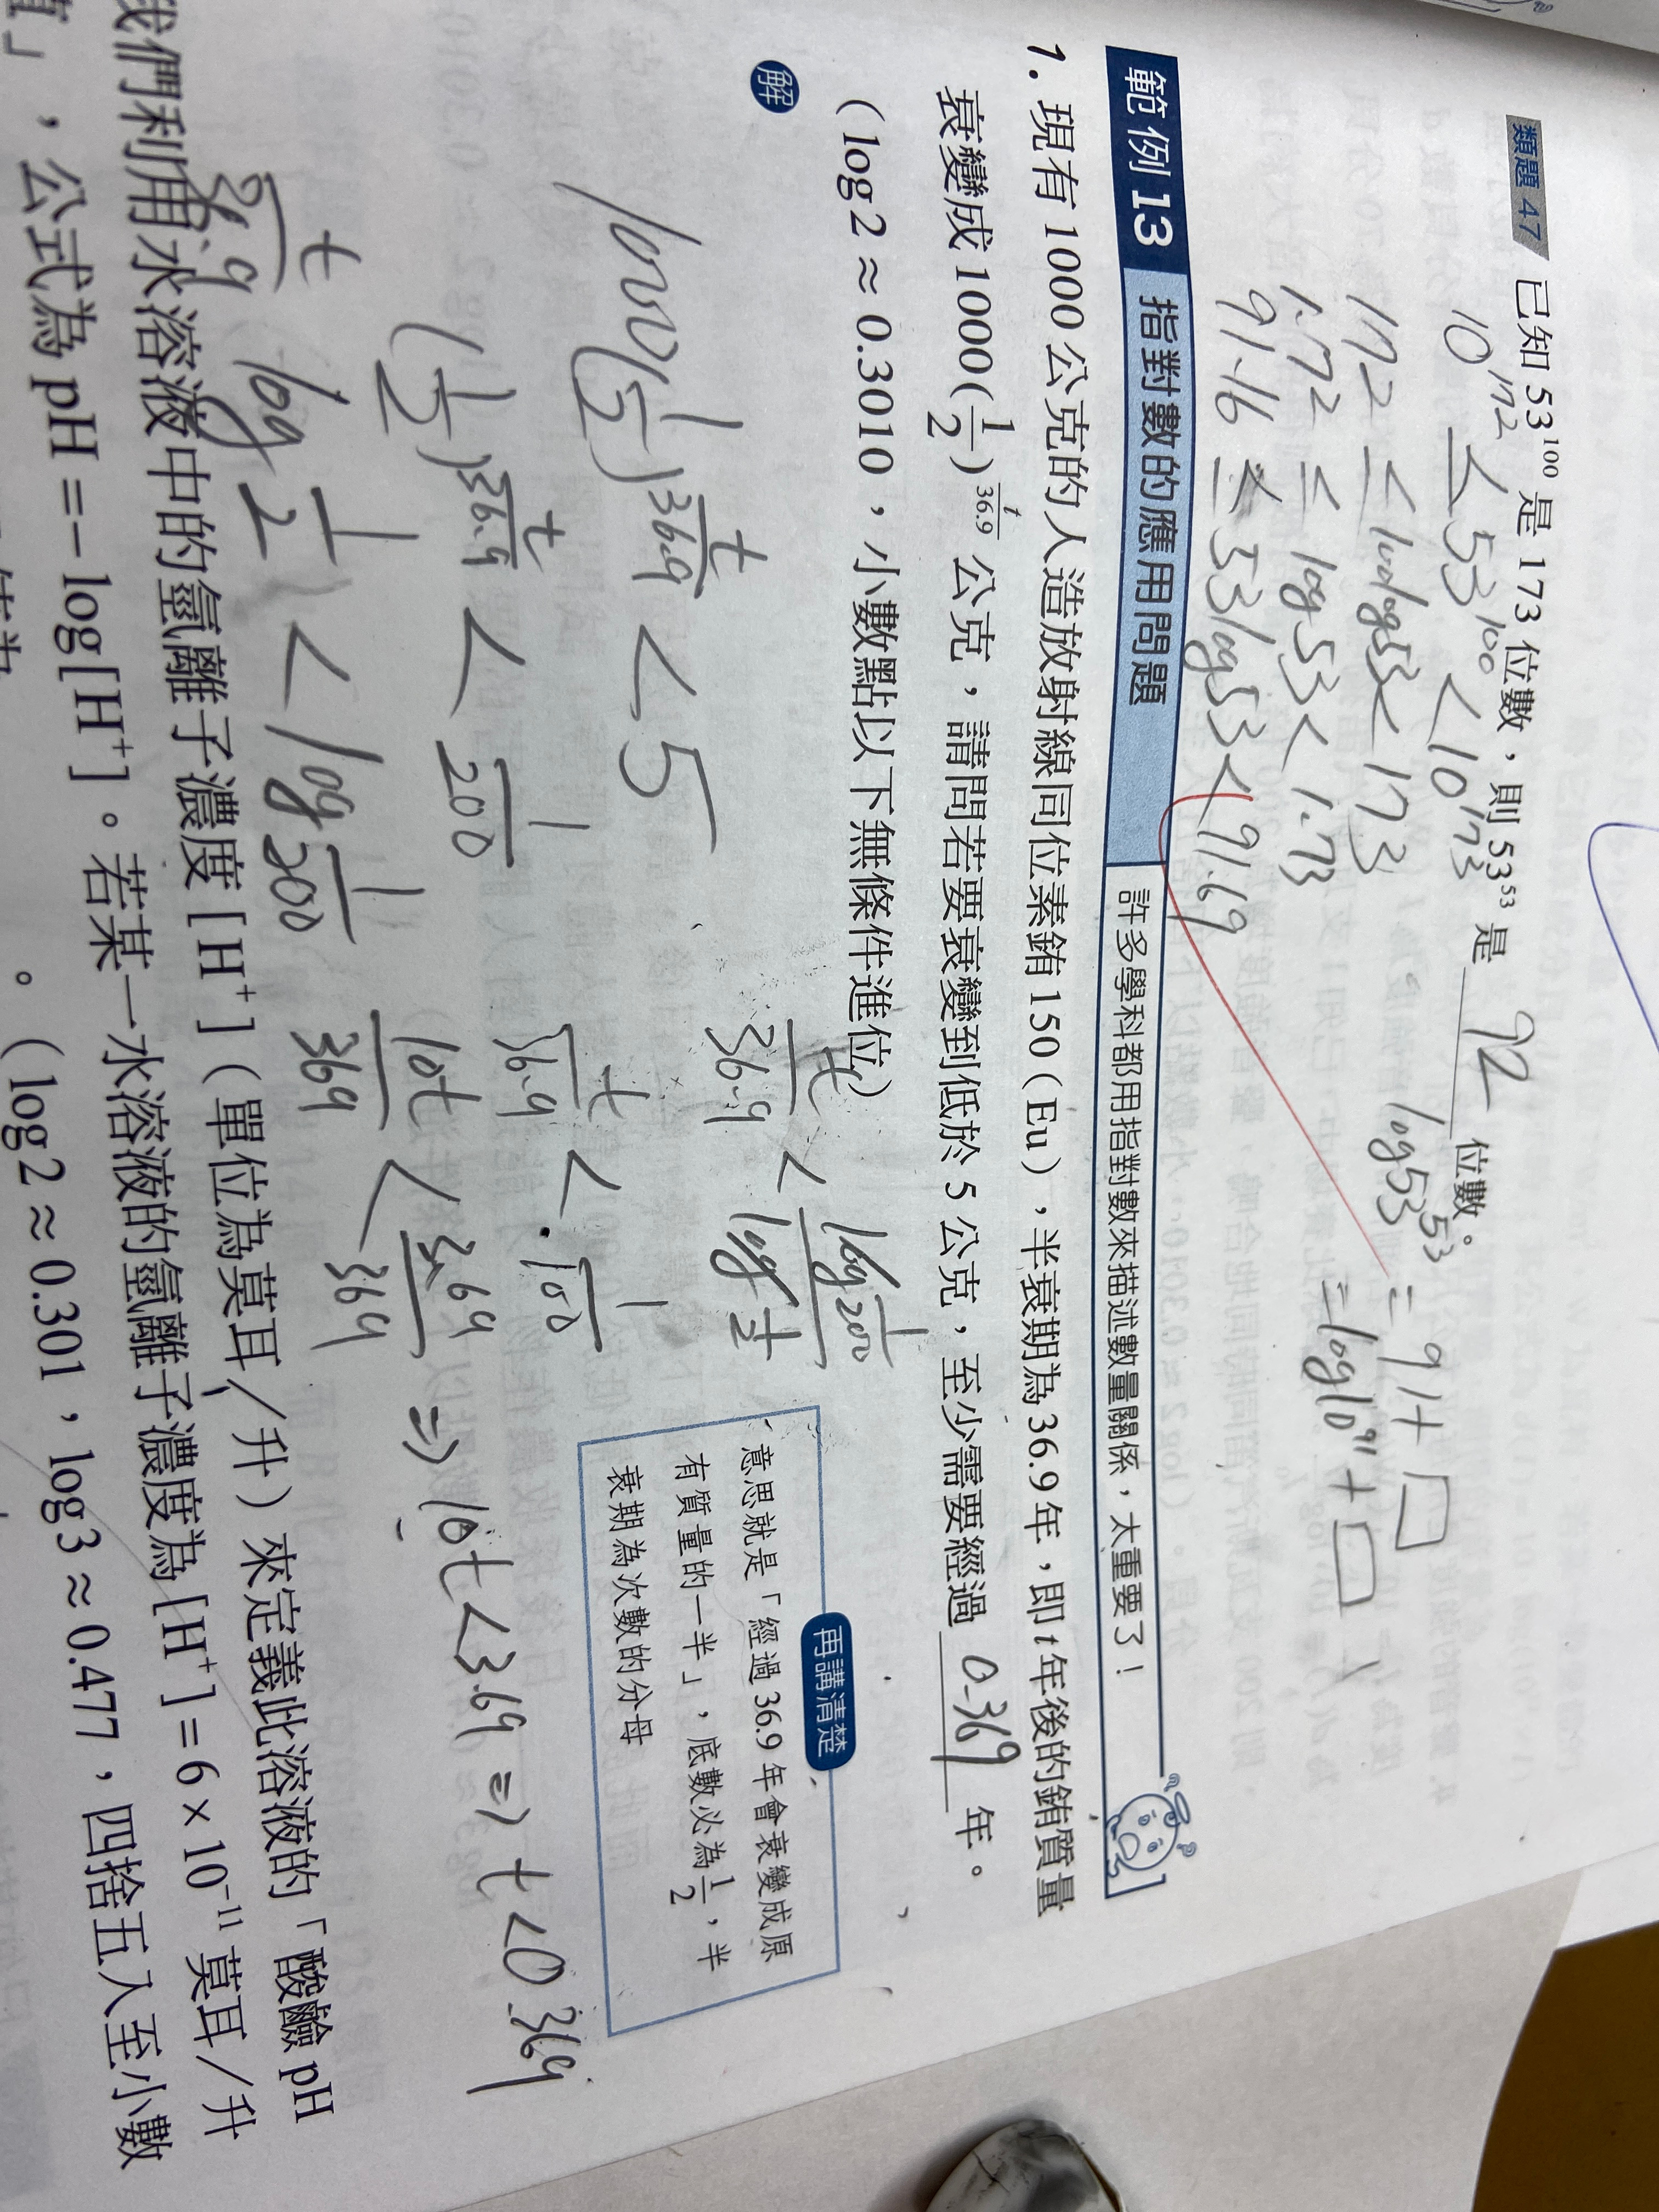 類題 47 已知 53¹⁰⁰ 是 173 位數，則 53⁵³ 是 92 位數。
10¹⁷² ≤ 53¹⁰⁰ < 10¹⁷³
log53⁵³ = 91+□
172 ≤ 100log53 < 173
= log10⁹¹ + □
1.72 ≤ log53 < 1.73
91.16 ≤ 53log53 < 91.69
範例 13 指對數的應用問題 許多學科都用指對數來描述數量關係，太重要了！
1. 現有 1000 公克的人造放射線同位素銪 150 (Eu)，半衰期為 36.9 年，即 t 年後的銪質量
衰變成 1000(1/2)^(t/36.9) 公克，請問若要衰變到低於 5 公克，至少需要經過 0.369 年。
(log2 ≈ 0.3010，小數點以下無條件進位)
解
再講清楚
意思就是「經過 36.9 年會衰變成原
有質量的一半」，底數必為 1/2，半
衰期為次數的分母
1000(1/2)^(t/36.9) < 5
(1/2)^(t/36.9) < 1/200
t/36.9 log 1/2 < log 1/200
t/36.9 < log 1/200 / log 1/2
t/36.9 < 1/100
10t/369 < 3.69/369 ⇒ 10t < 3.69 ⇒ t < 0.369
我們利用水溶液中的氫離子濃度 [H⁺]（單位為莫耳／升）來定義此溶液的「酸鹼 pH
值」，公式為 pH = − log[H⁺]。若某一水溶液的氫離子濃度為 [H⁺] = 6 × 10⁻¹¹ 莫耳／升
。(log2 ≈ 0.301，log3 ≈ 0.477，四捨五入至小數